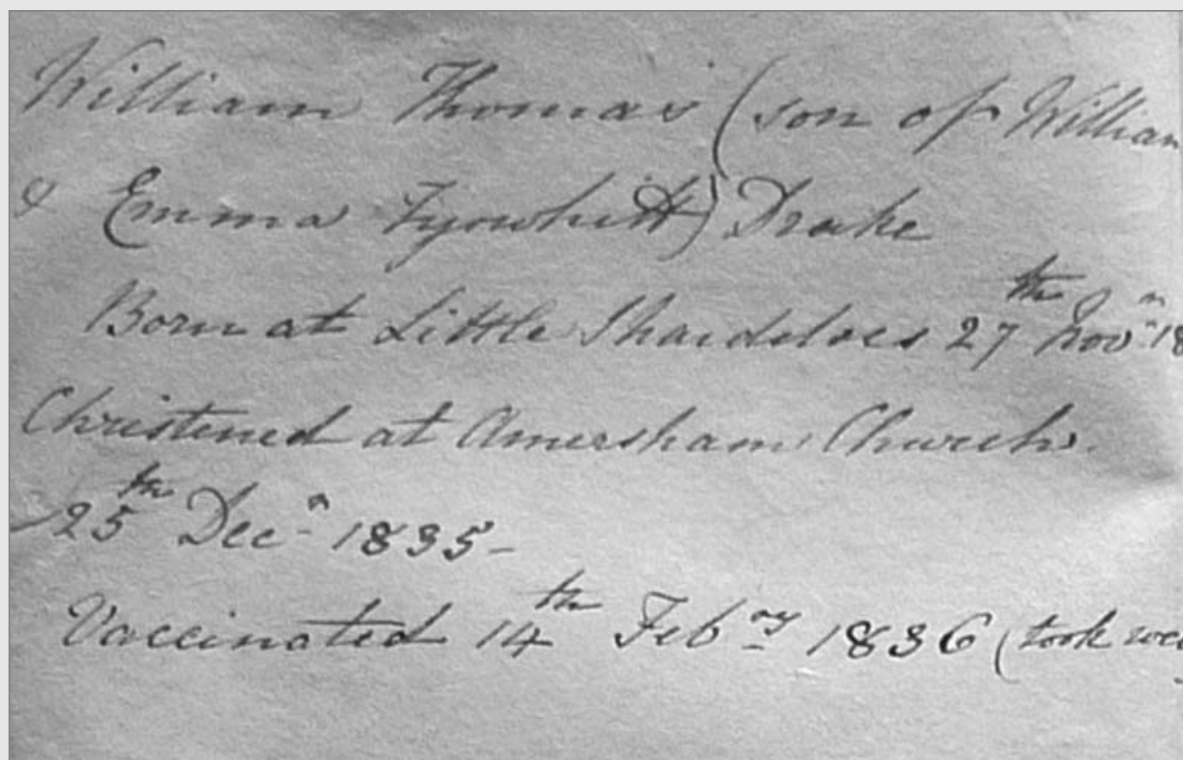 William Thomas (son of William
& Emma Tyrwhitt) Drake
Born at Little Shardeloes 27th Novr 18
Christened at Amersham Church.
25th Decr 1835-
Vaccinated 14th Febry 1836 (took